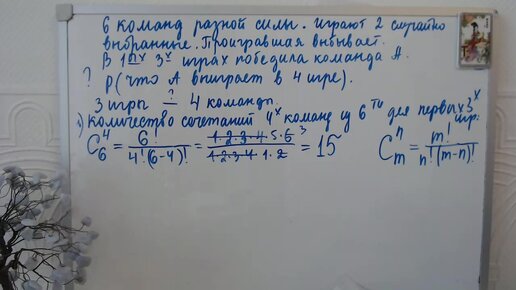 6 команд разной силы. играют 2 случайно
выбранные. Проигравшая выбывает.
В 1ых 3х играх победила команда А.
? P(что А выиграет в 4 игре).
3 игры ? 4 команды.
1) Количество сочетаний 4х команд из 6ти для первых 3х игр:
C₆⁴ = 6! / 4!(6-4)! = 1·2·3·4·5·6 3 / 1·2·3·4·1·2 = 15 Cₘⁿ = m! / n!(m-n)!